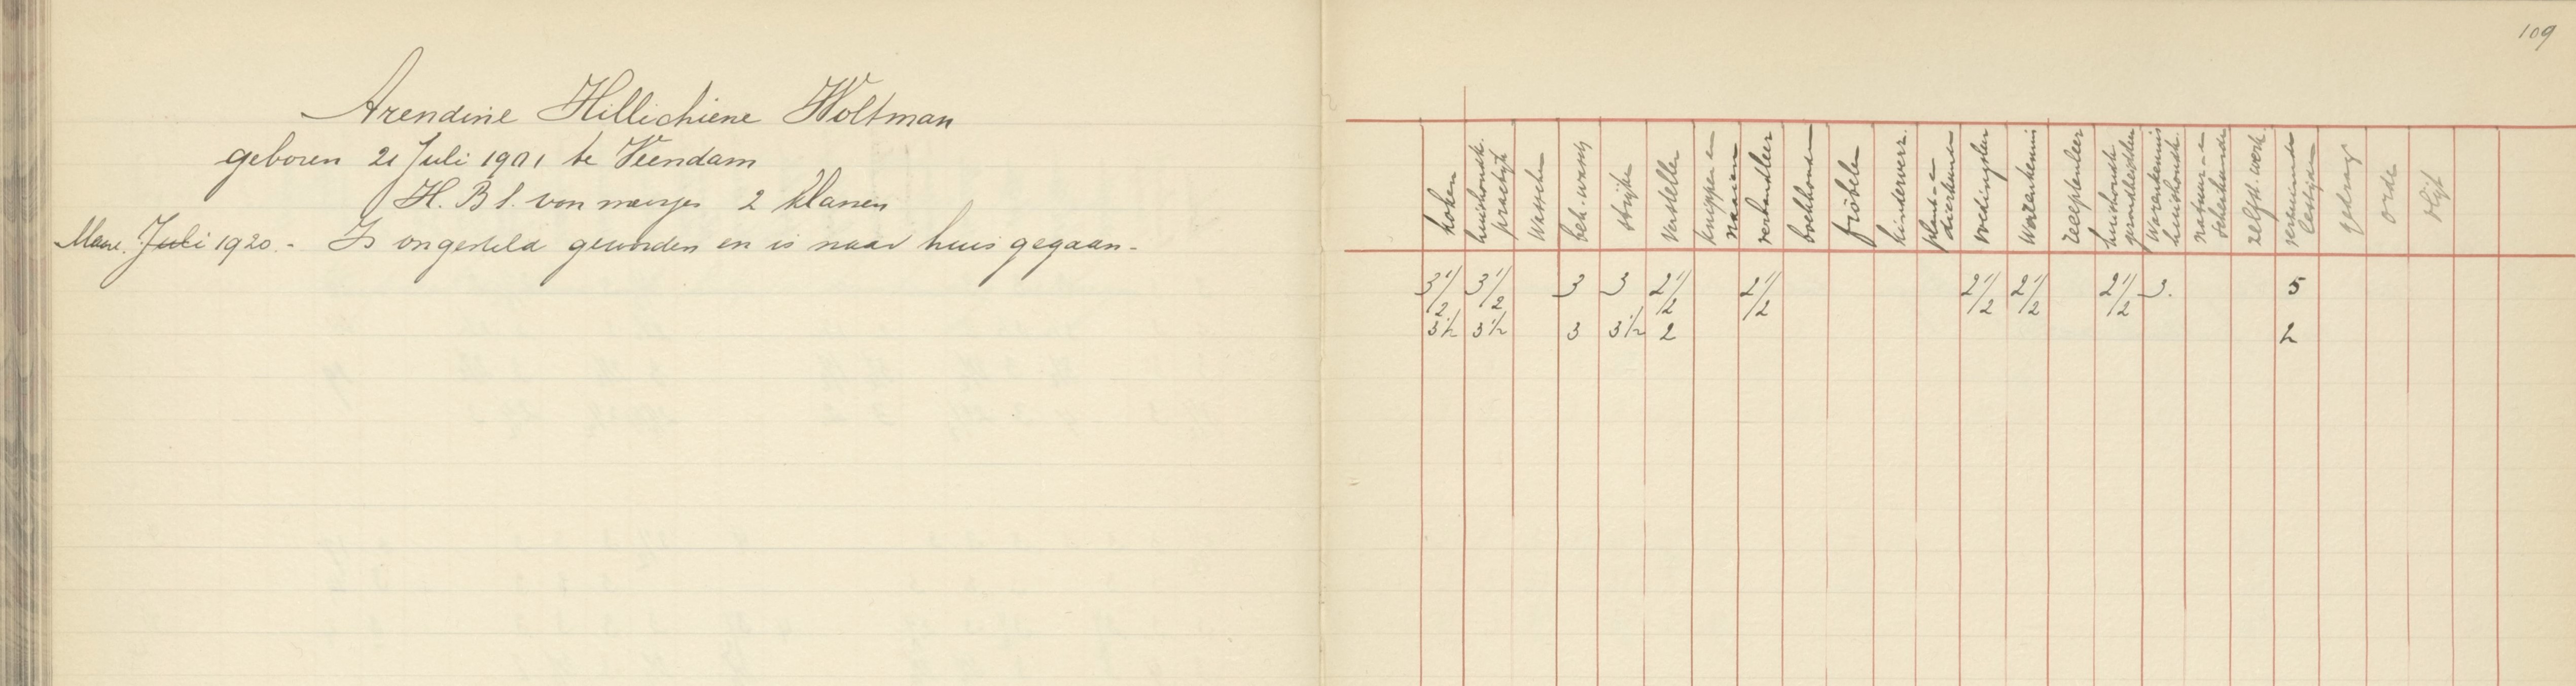 109
Arendine Hillichiene Woltman
geboren 21 Juli 1901 te Veendam
H. B S. van meisjes 2 klassen
Juli 1920. - Is ongesteld geworden en is naar huis gegaan -
koken
huishoudk. practijk
wasschen
beh. wasch
strijken
verstellen
knippen en naaien
verbandleer
boekhouden
fröbelen
kinderverz.
plant- en dierkunde
voedingsleer
warenkennis
receptenleer
huishoudk. gezondheidsleer
warenkennis huishoudk.
natuur- en scheikunde
zelfst. werk.
verzuimde lestijden
gedrag
orde
vlijt
3 1/2 3 1/2 3 3 2 1/2 2 1/2 2 1/2 2 1/2 2 1/2 3. 5
3 1/2 3 1/2 3 3 1/2 2 2